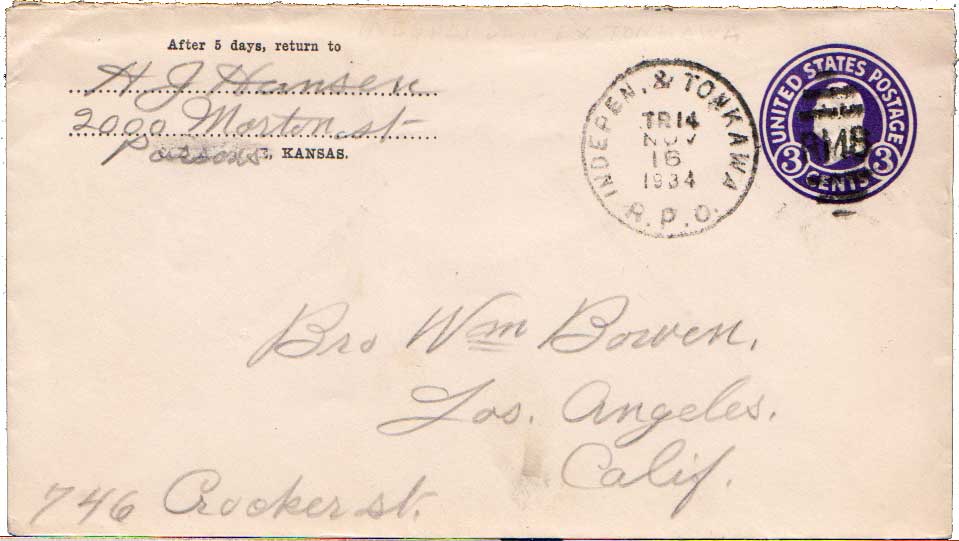 After 5 days, return to
H J Hansen
2000 Morton st
Parsons, KANSAS.
INDEPEN. & TONKAWA
TR14
NOV
16
1934
R.P.O.
UNITED STATES POSTAGE
3 CENTS 3
RMS
Bro Wm Bowen,
Los. Angeles.
Calif.
746 Crocker st.